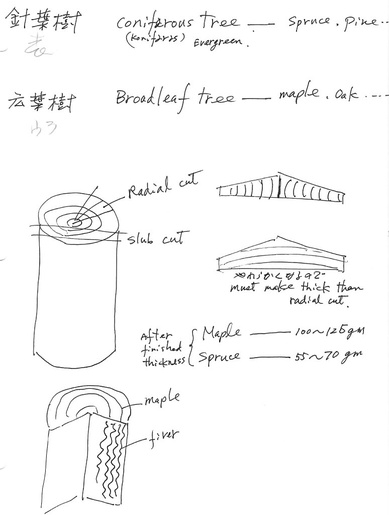 針葉樹 coniferous tree — Spruce. Pine..
(koniferas) Evergreen.
広葉樹 Broadleaf tree — maple. Oak ....
Radial cut
Slub cut
must make thick than
radial cut.
After
finished
thickness
Maple — 100~125gm
Spruce — 55~70gm
maple
fiver